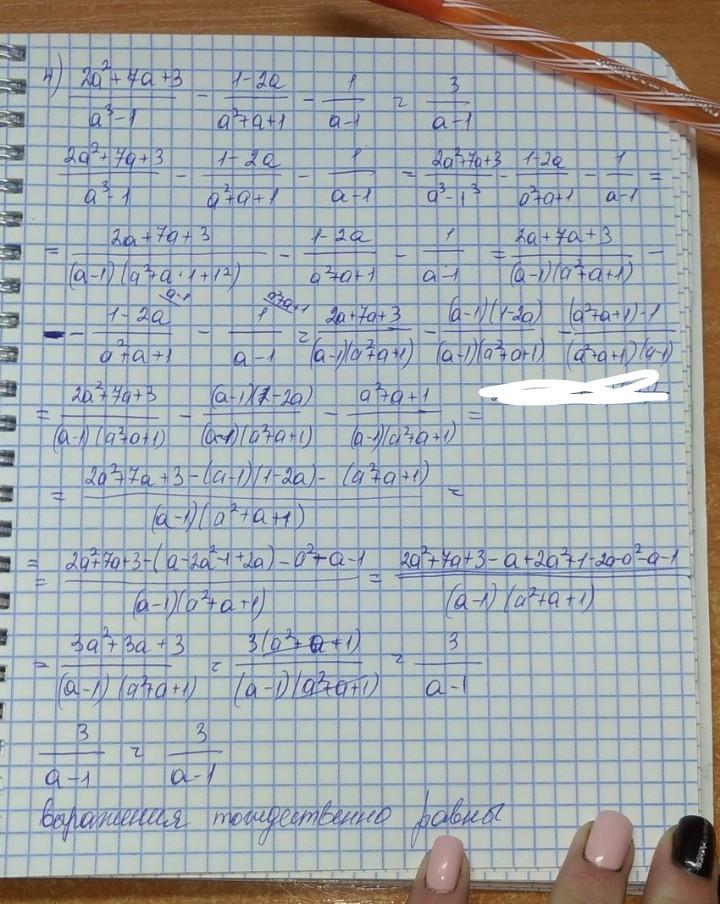 4) (2a²+7a+3)/(a³-1) - (1-2a)/(a²+a+1) - 1/(a-1) = 3/(a-1)
(2a²+7a+3)/(a³-1) - (1-2a)/(a²+a+1) - 1/(a-1) = (2a²+7a+3)/(a³-1³) - (1-2a)/(a²+a+1) - 1/(a-1) =
= (2a+7a+3)/((a-1)(a²+a·1+1²)) - (1-2a)/(a²+a+1) - 1/(a-1) = (2a+7a+3)/((a-1)(a²+a+1)) -
- (1-2a)/(a²+a+1) ^(a-1) - 1/(a-1) ^(a²+a+1) = (2a+7a+3)/((a-1)(a²+a+1)) - ((a-1)(1-2a))/((a-1)(a²+a+1)) - ((a²+a+1)·1)/((a²+a+1)(a-1))
= (2a²+7a+3)/((a-1)(a²+a+1)) - ((a-1)(1-2a))/((a-1)(a²+a+1)) - (a²+a+1)/((a-1)(a²+a+1)) =
= (2a²+7a+3-(a-1)(1-2a)-(a²+a+1))/((a-1)(a²+a+1)) =
= (2a²+7a+3-(a-2a²-1+2a)-a²-a-1)/((a-1)(a²+a+1)) = (2a²+7a+3-a+2a²+1-2a-a²-a-1)/((a-1)(a²+a+1))
= (3a²+3a+3)/((a-1)(a²+a+1)) = (3(a²+a+1))/((a-1)(a²+a+1)) = 3/(a-1)
3/(a-1) = 3/(a-1)
выражения тождественно равны